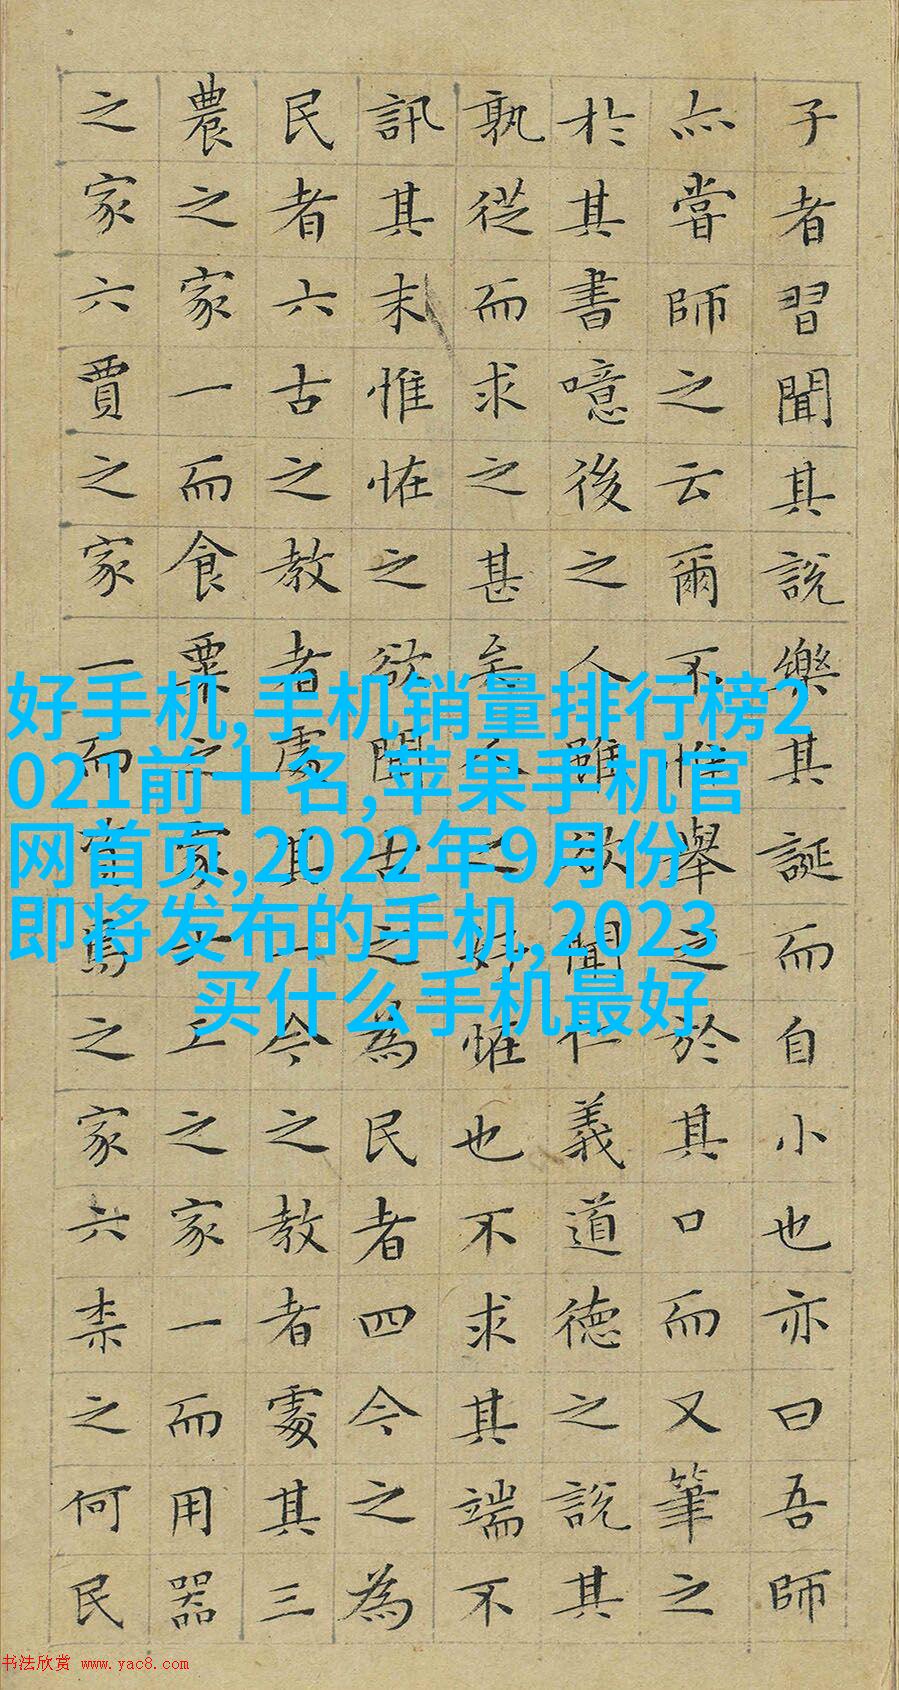 子者習聞其說樂其誕而自小也亦曰吾師
亦嘗師之云爾不惟舉之於其口而又筆之
於其書噫後之人雖欲聞仁義道德之說其
孰從而求之甚矣人之好恠也不求其端不
訊其末惟恠之欲聞古之為民者四今之為
民者六古之教者處其一今之教者處其三
農之家一而食粟之家六工之家一而用器
之家六賈之家一而資焉之家六柰之何民
好手机,手机销量排行榜2
021前十名,苹果手机官
网首页,2022年9月份
即将发布的手机,2023
买什么手机最好
书法欣赏 www.yac8.com